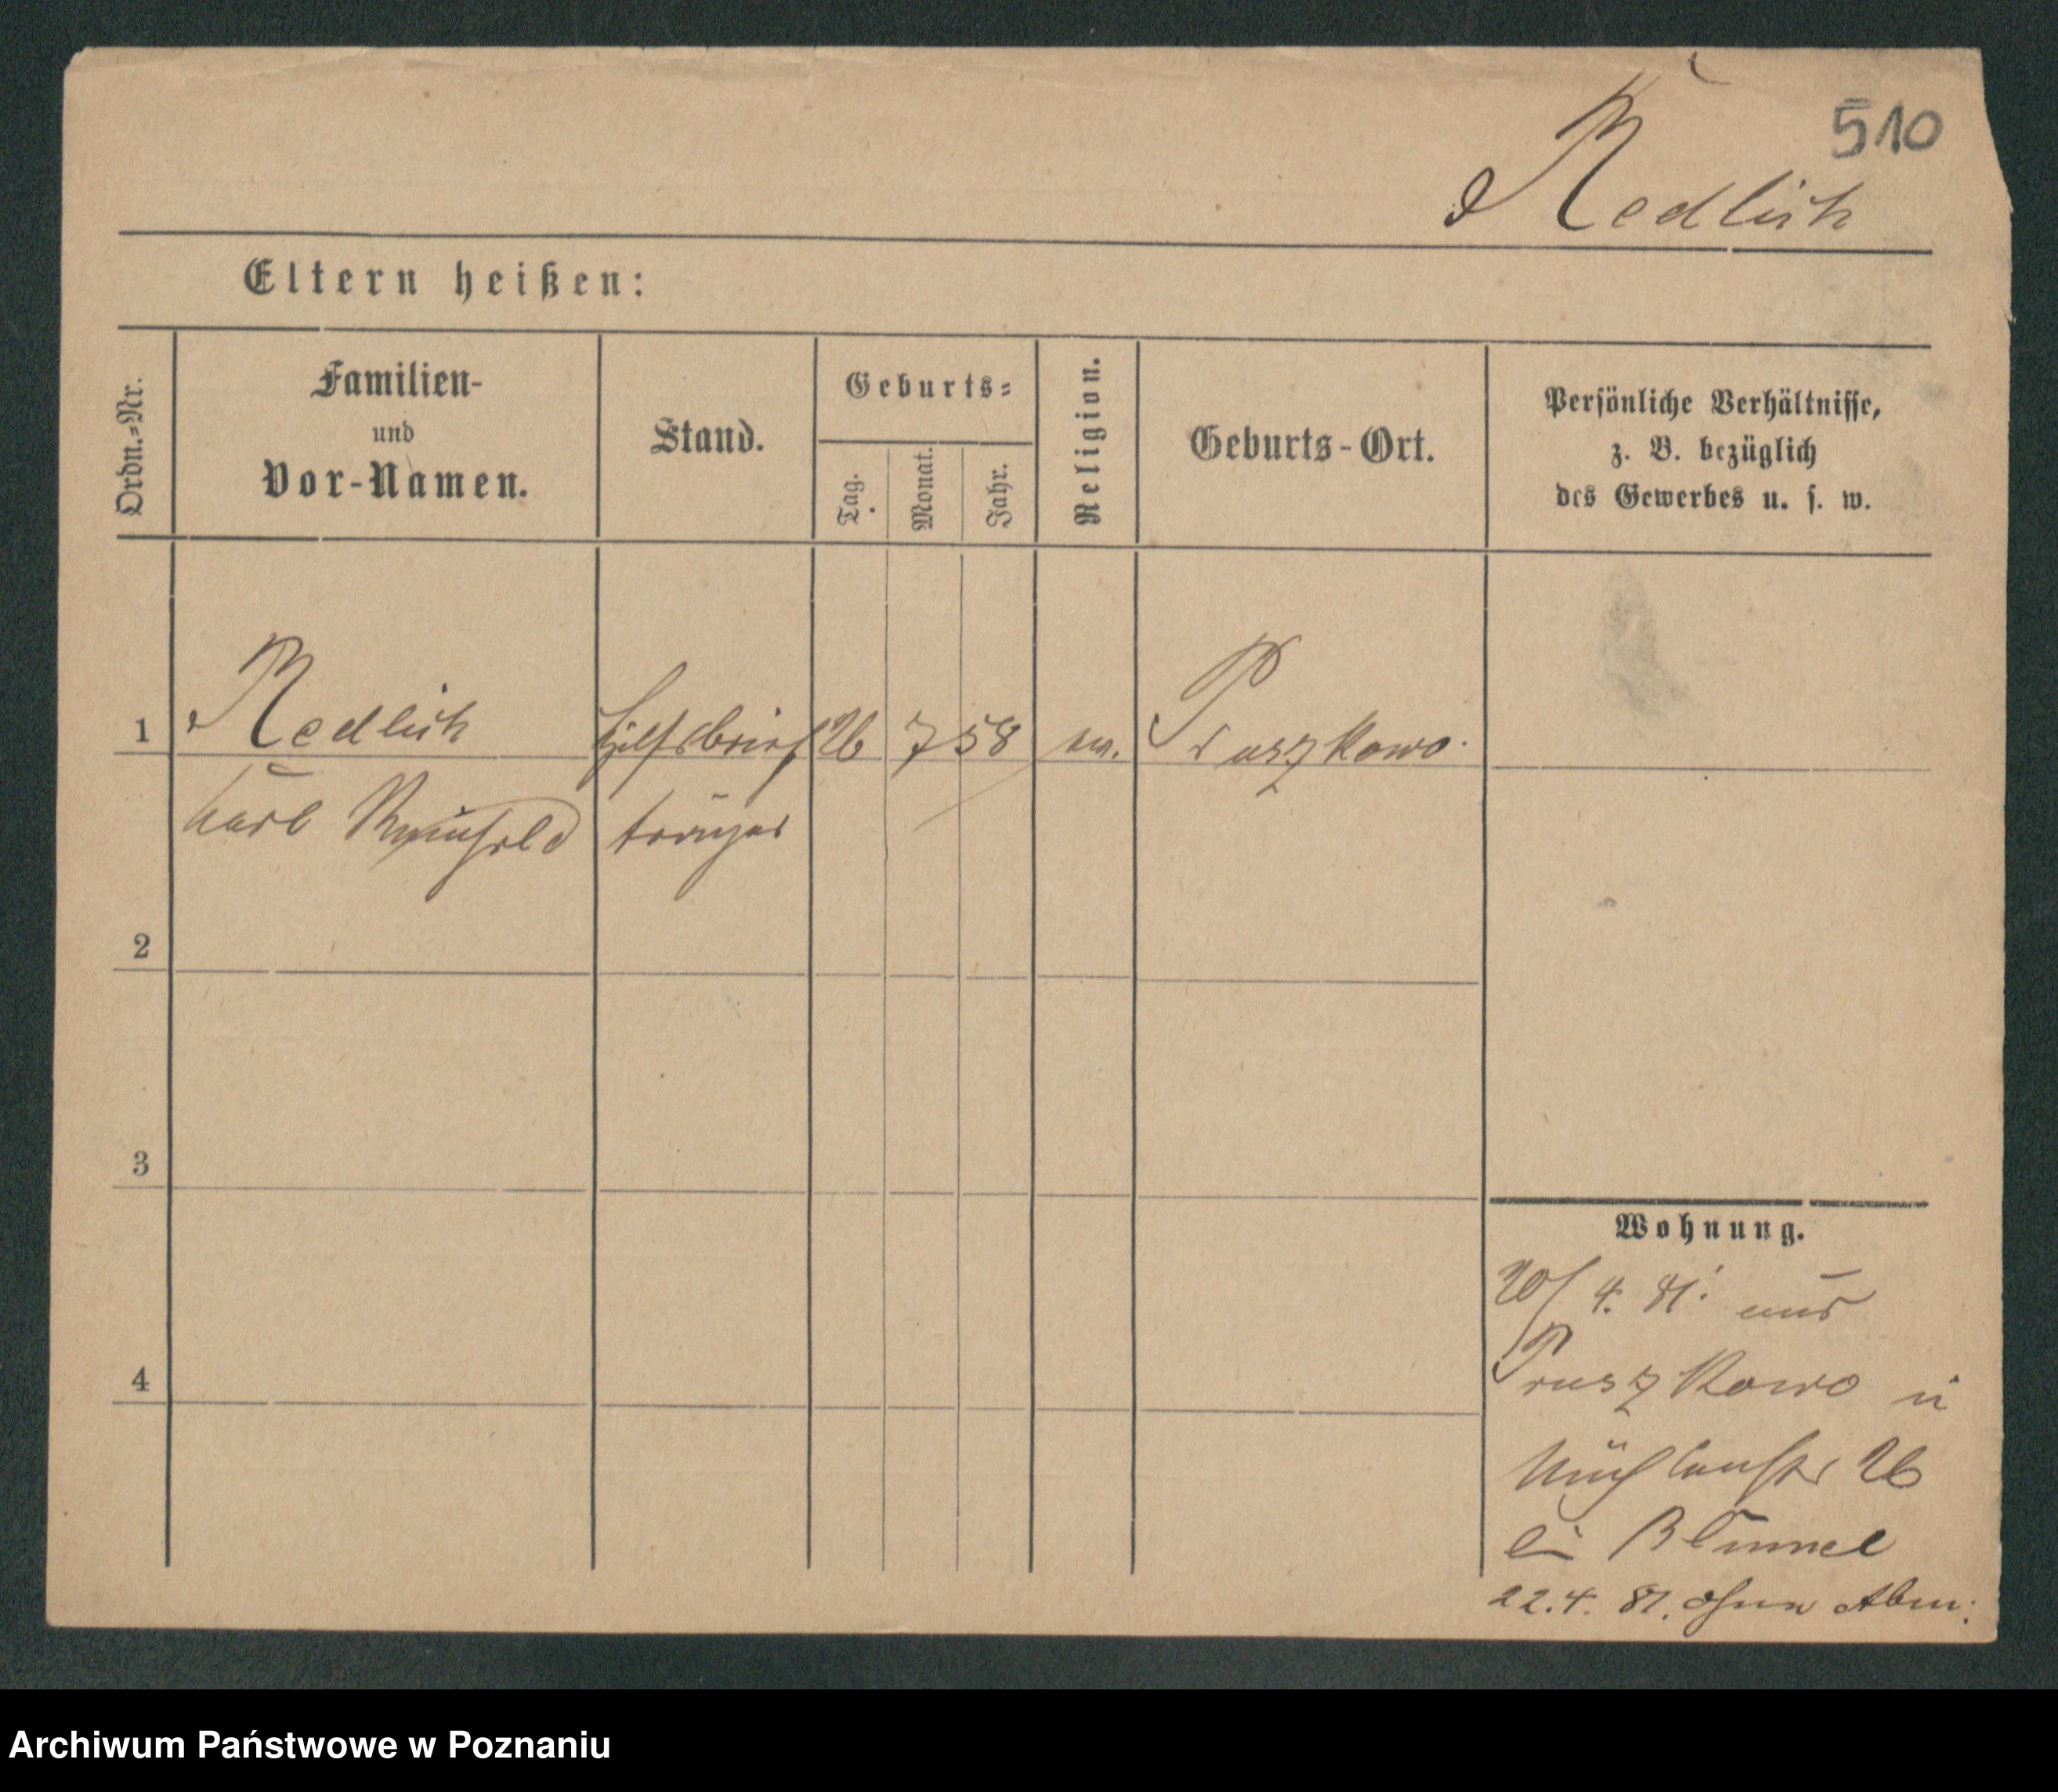 510
Redlich
Eltern heißen:
Ordn.=Nr.
Familien-
und
Vor-Namen.
Stand.
Geburts=
Tag.
Monat.
Jahr.
Religion.
Geburts-Ort.
Persönliche Verhältnisse,
z. B. bezüglich
des Gewerbes u. s. w.
1 Redlich Hilfsbrief 26 7 58 ev. Pruszkowo.
Karl Reinhold träger
2
3
4
Wohnung.
20/4. 81. aus
Pruszkowo n
Mühlenstr 26
bei Blümel
22.4. 81. ohne Abm:
Archiwum Państwowe w Poznaniu